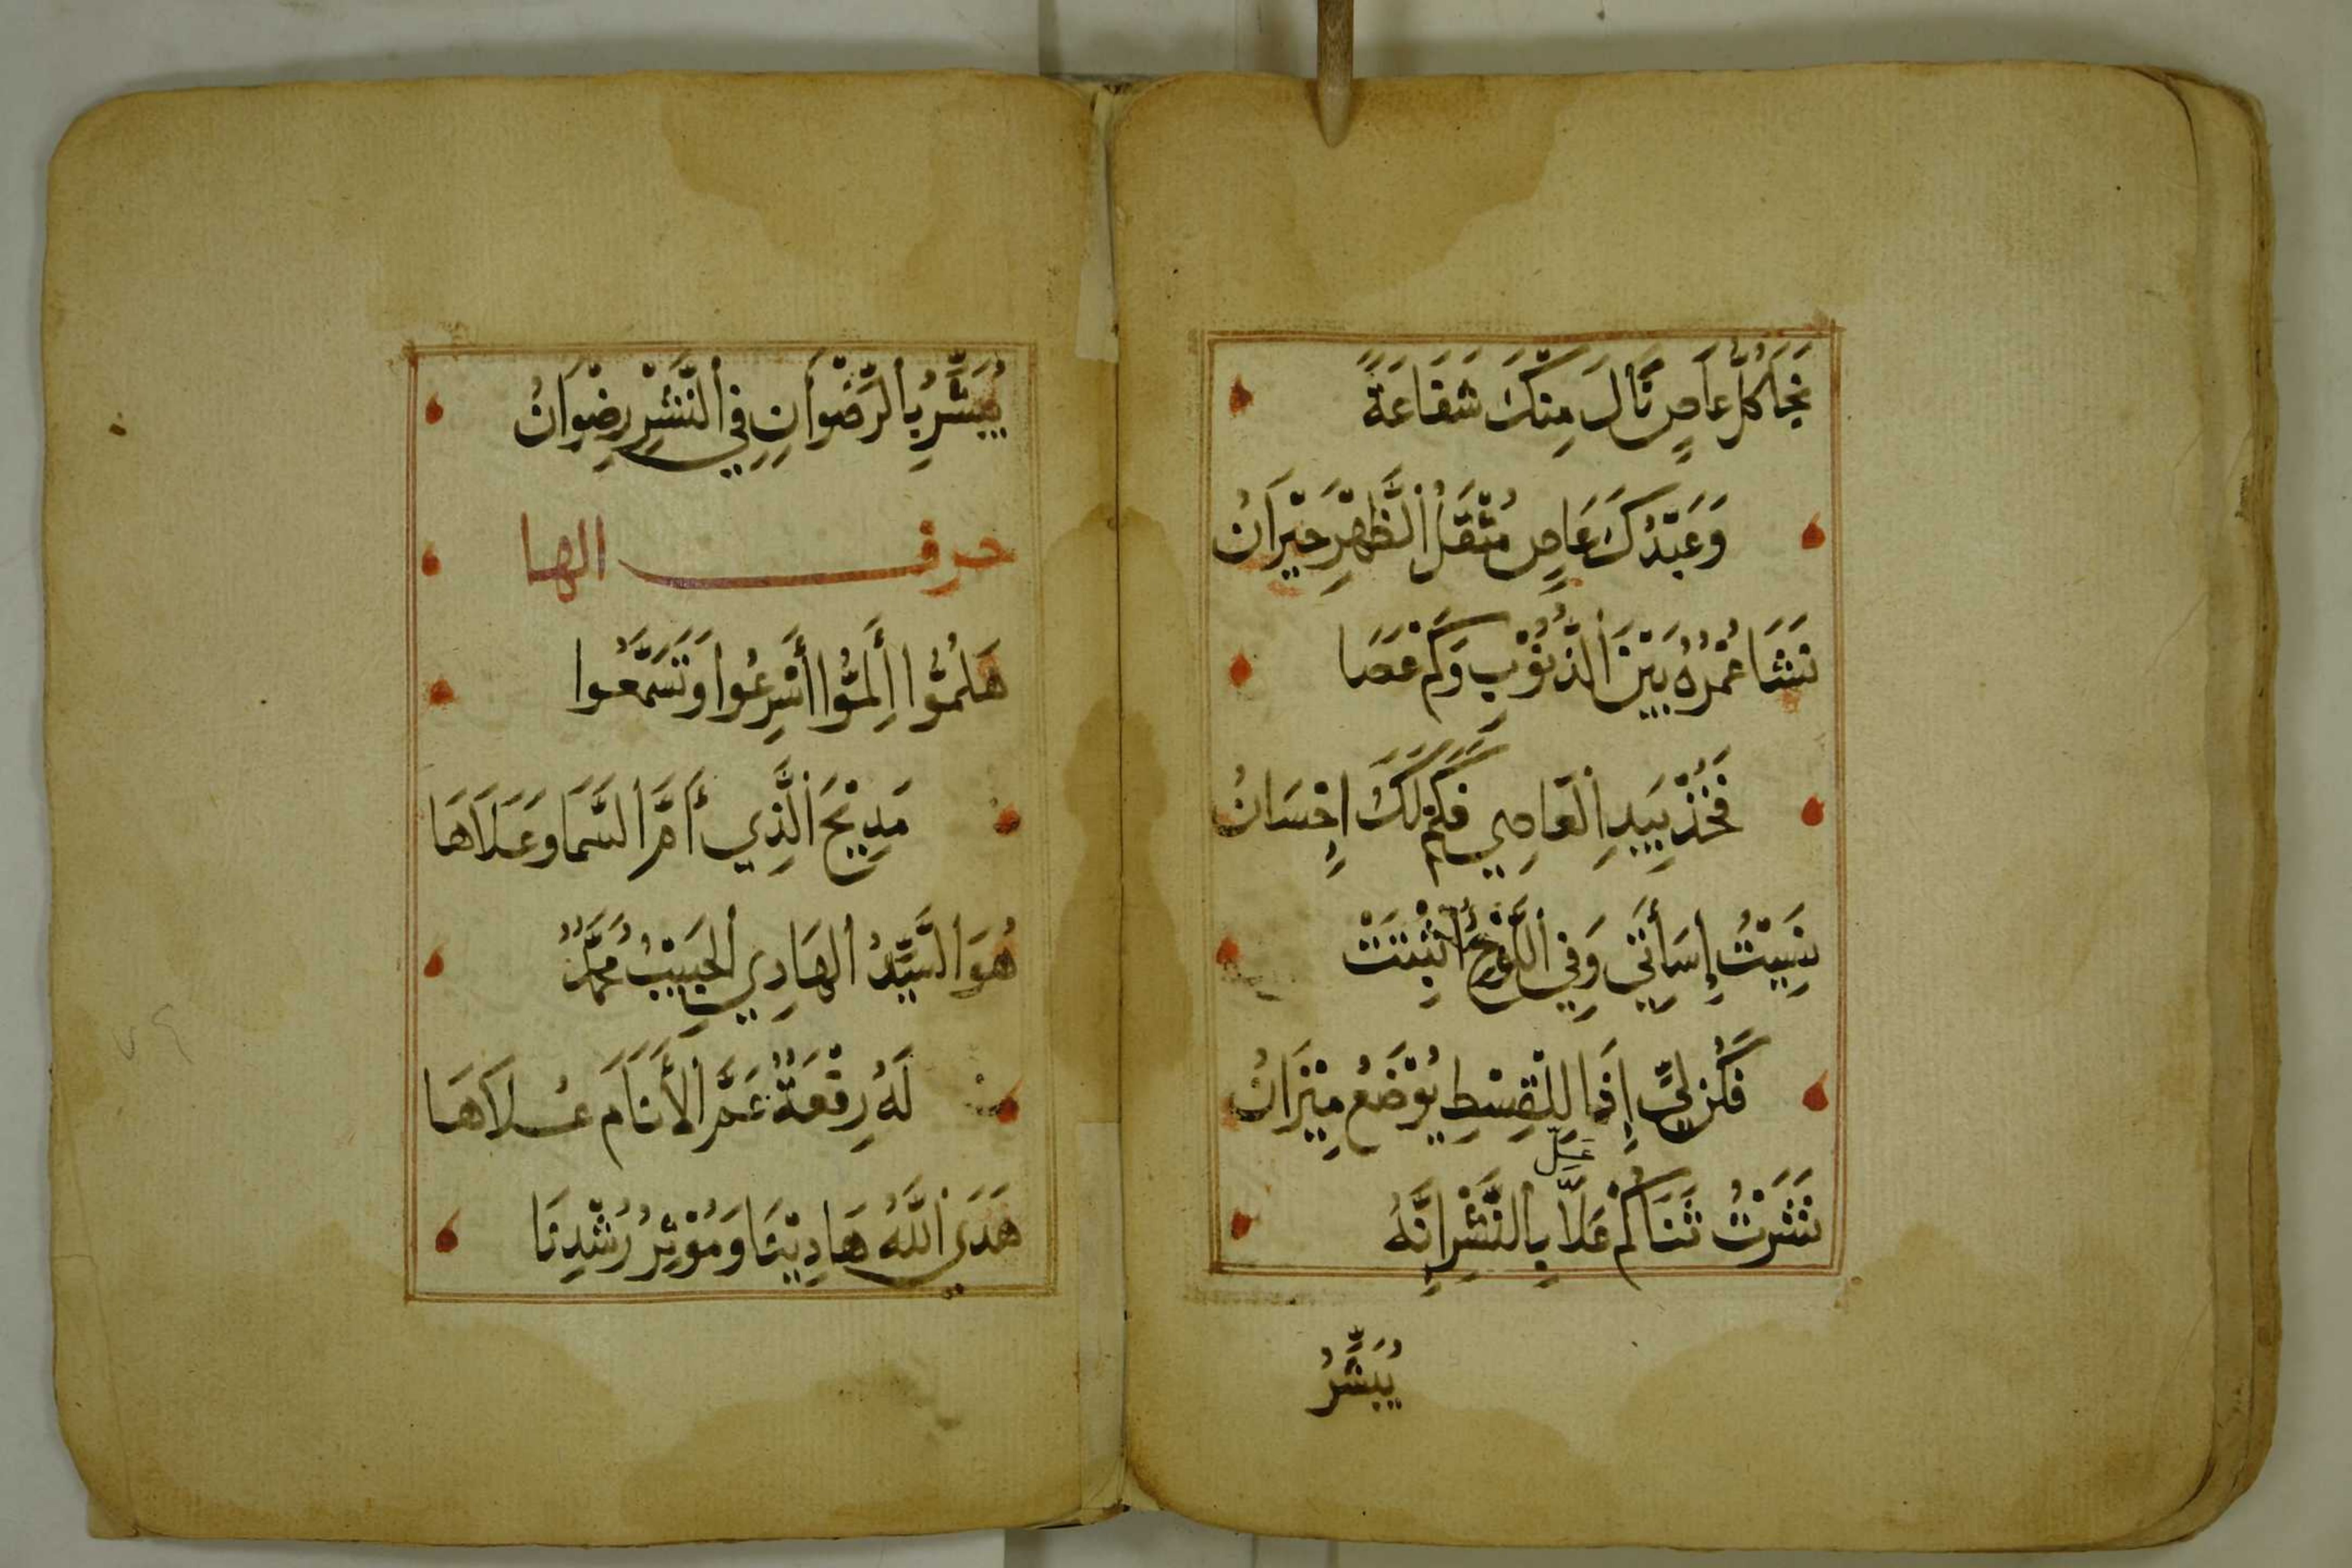 نَجَا كُلُّ عَاصٍ نَالَ مِنْكَ شَفَاعَةً
وَعَبْدُكَ عَاصٍ مُثْقَلُ الظَّهْرِ حَيْرَانُ
نَشَا عُمْرُهُ بَيْنَ الذُّنُوْبِ وَكَمْ عَصَا
فَخُذْ بِيَدِ الْعَاصِي فَكَمْ لَكَ اِحْسَانُ
نَسِيْتُ إِسَأَتِي وَفِي اللَّوْحِ أُثْبِتَتْ
فَكُنْ لِيَ إِذَا لِلْقِسْطِ يُوْضَعُ مِيْزَانُ
عَلَّ
نَشَرْتُ ثَنَاكُمْ عَلَّا بِالنَّشْرِ اِنَّهُ
يُبَشِّرُ
يُبَشِّرُ بِالرِّضْوَانِ فِي النَّشْرِ رِضْوَانُ
حرف الها
هَلُمُّوا أَلِمُّوا أَسْرِعُوا وَتَسَمَّعُوا
مَدِيْحَ الَّذِي أَمَّ السَّمَا وَعَلَاهَا
هُوَ السَّيِّدُ الهَادِي الحَبِيْبُ مُحَمَّدٌ
لَهُ رِفْعَةٌ عَمَّ الأَنَامَ عُلَاهَا
هَدَى اللَّهُ هَادِيْنَا وَمُوْثِرُ رُشْدِنَا